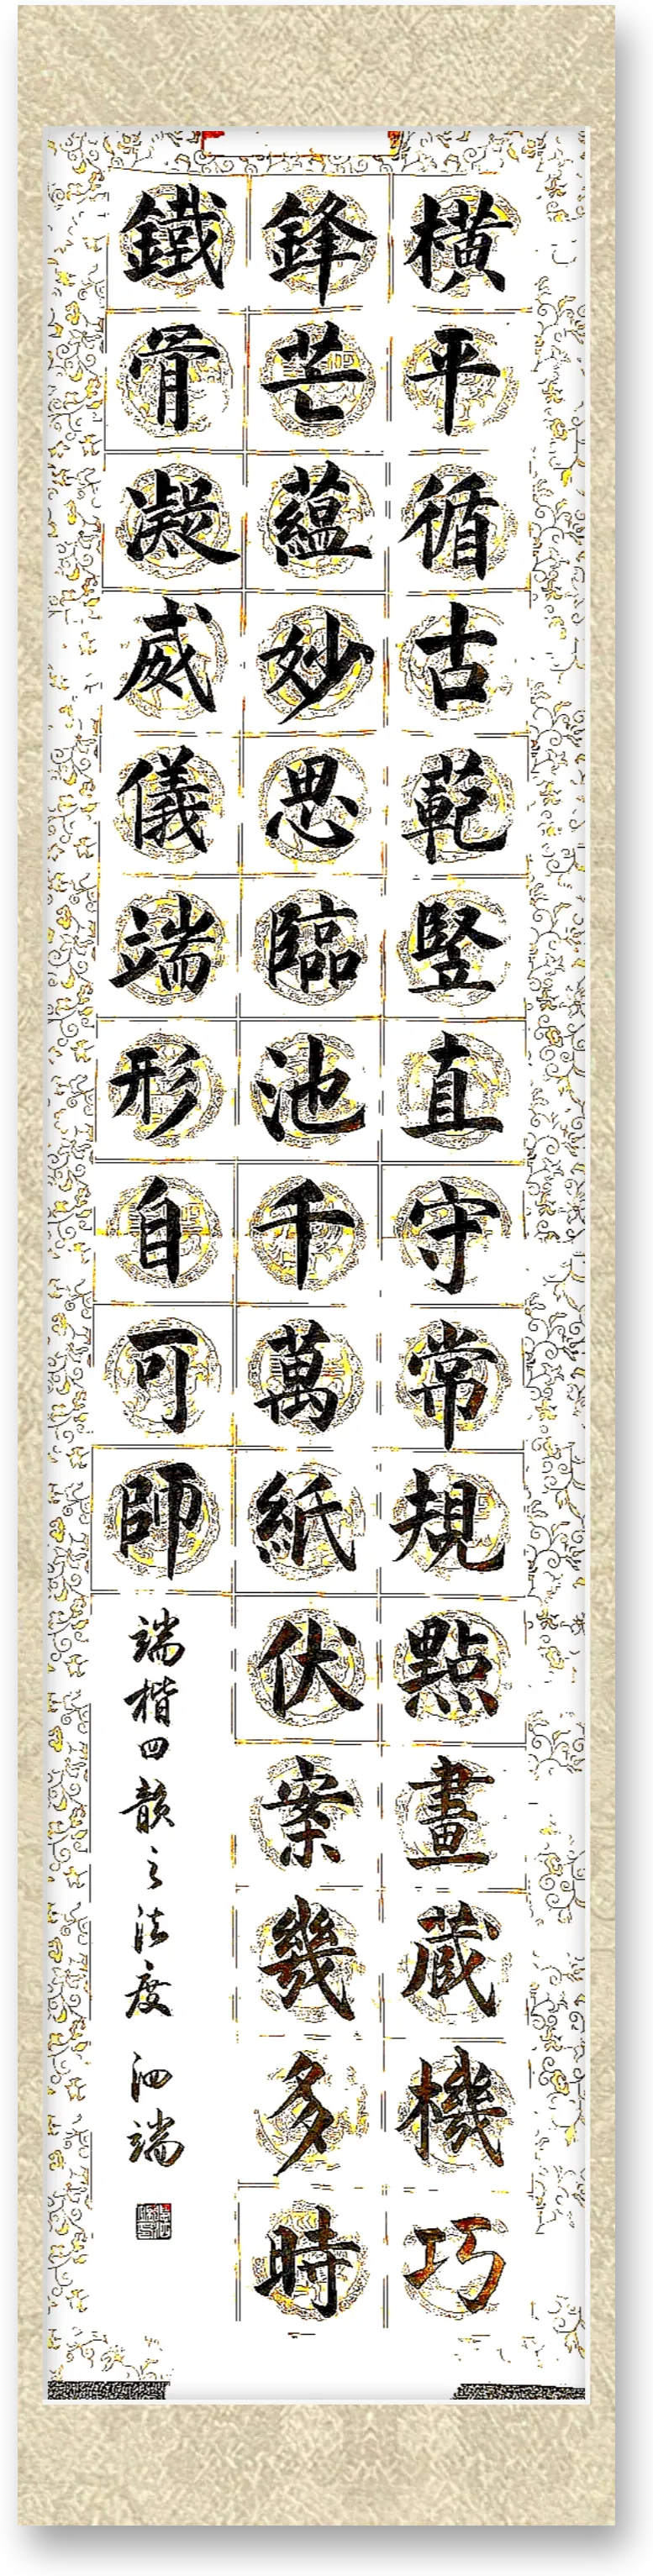 橫平循古範豎直守常規點畫蔵機巧
鋒芒蘊妙思臨池千萬紙伏案幾多時
鐵骨凝威儀端形自可師
端楷四韻之法度 泗端